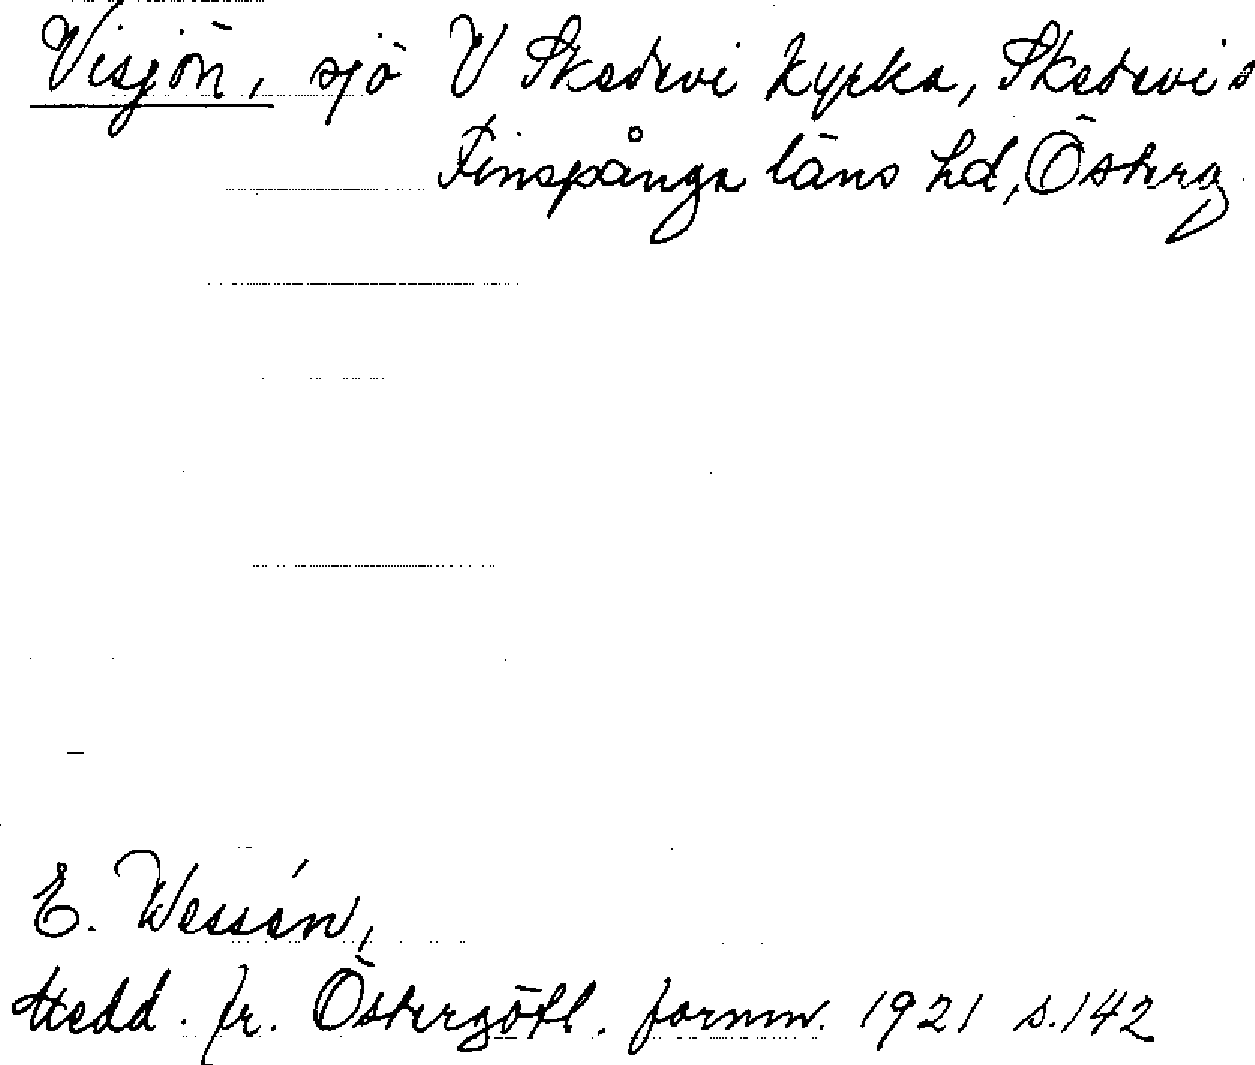 Visjön, sjö V Skedevi kyrka, Skedevi s
Finspånga läns hd, Österg.
E. Wessén,
Medd. fr. Östergötl. fornm. 1921 s.142